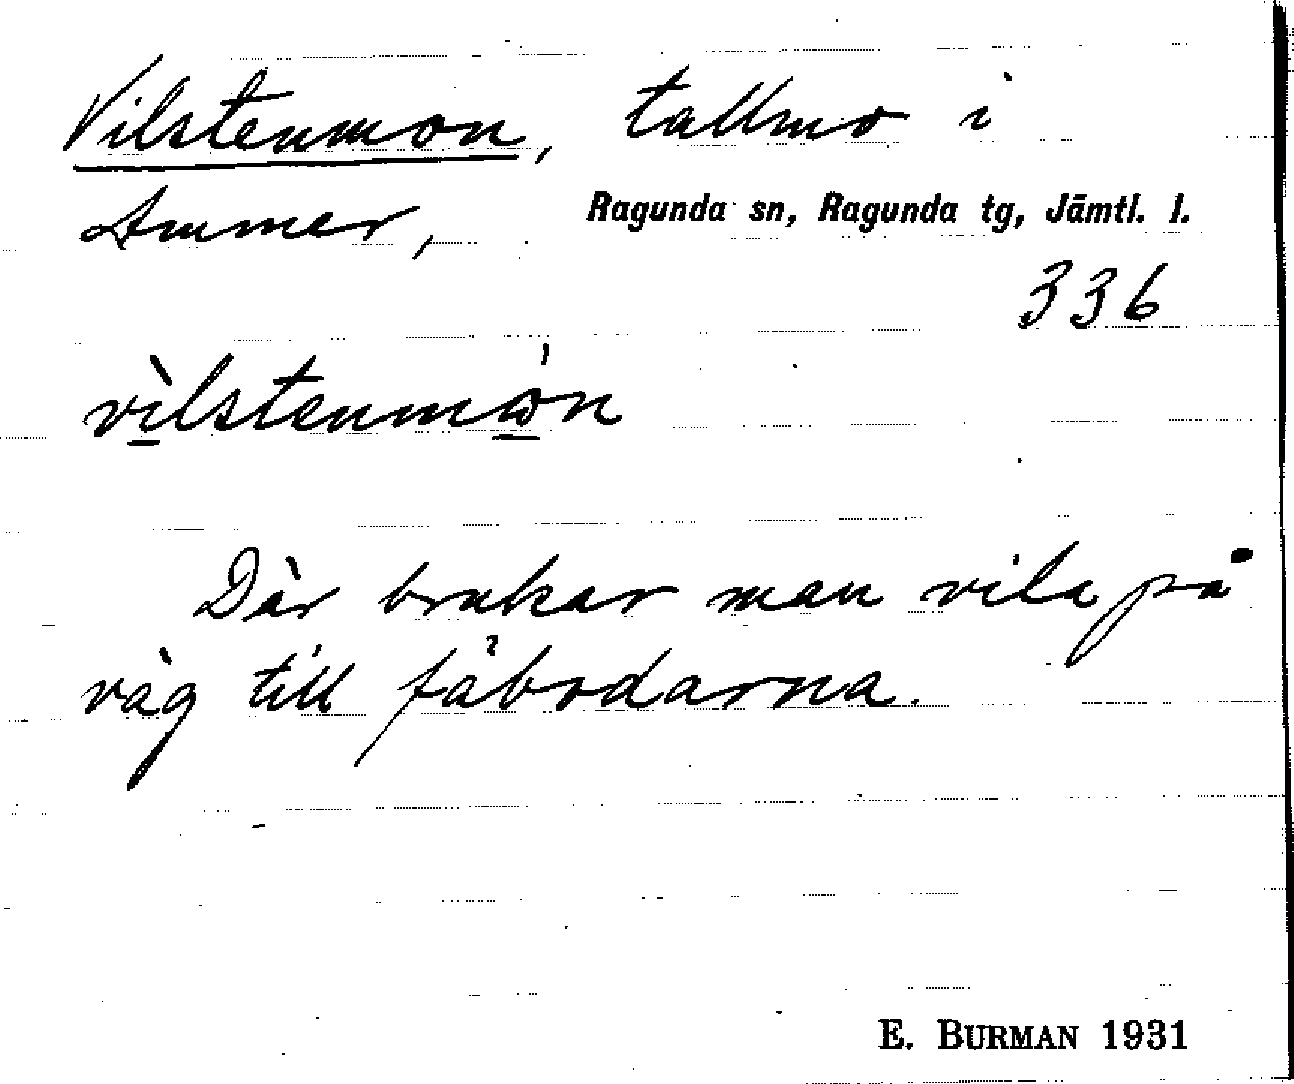 Vilstenmon, tallmo i
Ammer, Ragunda sn, Ragunda tg, Jämtl. l.
336
vìlstenmω̇n
Där brukar man vila på
väg till fäbodarna.
E. BURMAN 1931